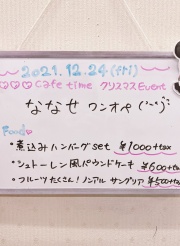 2021.12.24(fri)
♡♡♡ Cafe time クリスマスEvent
ななせ ワンオペ (˙ᵕ˙)
Food♡
・煮込みハンバーグset ¥1000+tax
・シュトーレン風パウンドケーキ ¥600+tax
・フルーツたくさん!ノンアルサングリア ¥500+tax